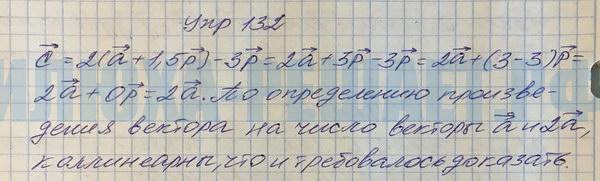 Упр 132
c⃗ = 2(a⃗ + 1,5p⃗) - 3p⃗ = 2a⃗ + 3p⃗ - 3p⃗ = 2a⃗ + (3-3)p⃗ =
2a⃗ + 0p⃗ = 2a⃗. По определению произве-
дения вектора на число векторы a⃗ и 2a⃗,
коллинеарны, что и требовалось доказать.